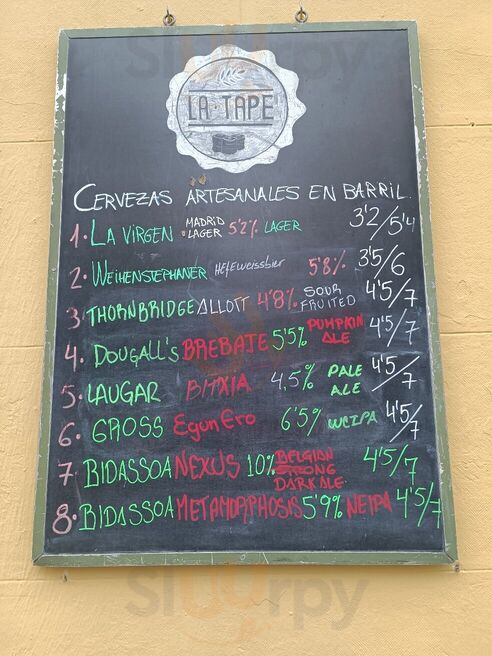 Sluurpy
LA·TAPE
CERVEZAS ARTESANALES EN BARRIL.
1. LA VIRGEN MADRID LAGER 5'2% LAGER 3'2/5'4
2. WEIHENSTEPHANER HEFEWEISSBIER 5'8% 3'5/6
3. THORNBRIDGE ALLOTT 4'8% SOUR FRUITED 4'5/7
4. DOUGALL'S BREBAJE 5'5% PUMPKIN ALE 4'5/7
5. LAUGAR BITXIA 4,5% PALE ALE 4'5/7
6. GROSS EGUN ERO 6'5% WCIPA 4'5/7
7. BIDASSOA NEXUS 10% BELGIAN STRONG DARK ALE. 4'5/7
8. BIDASSOA METAMORPHOSIS 5'9% NEIPA 4'5/7
Sluurpy